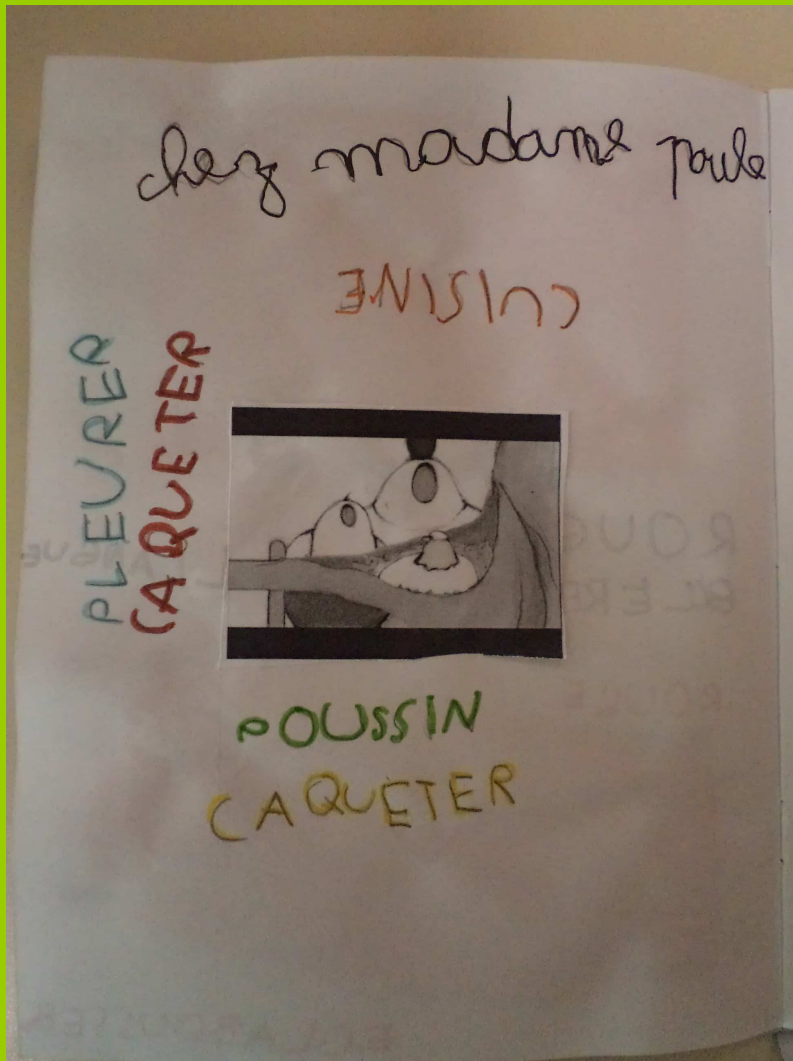 chez madame poule
CUISINE
PLEURER
CAQUETER
POUSSIN
CAQUETER